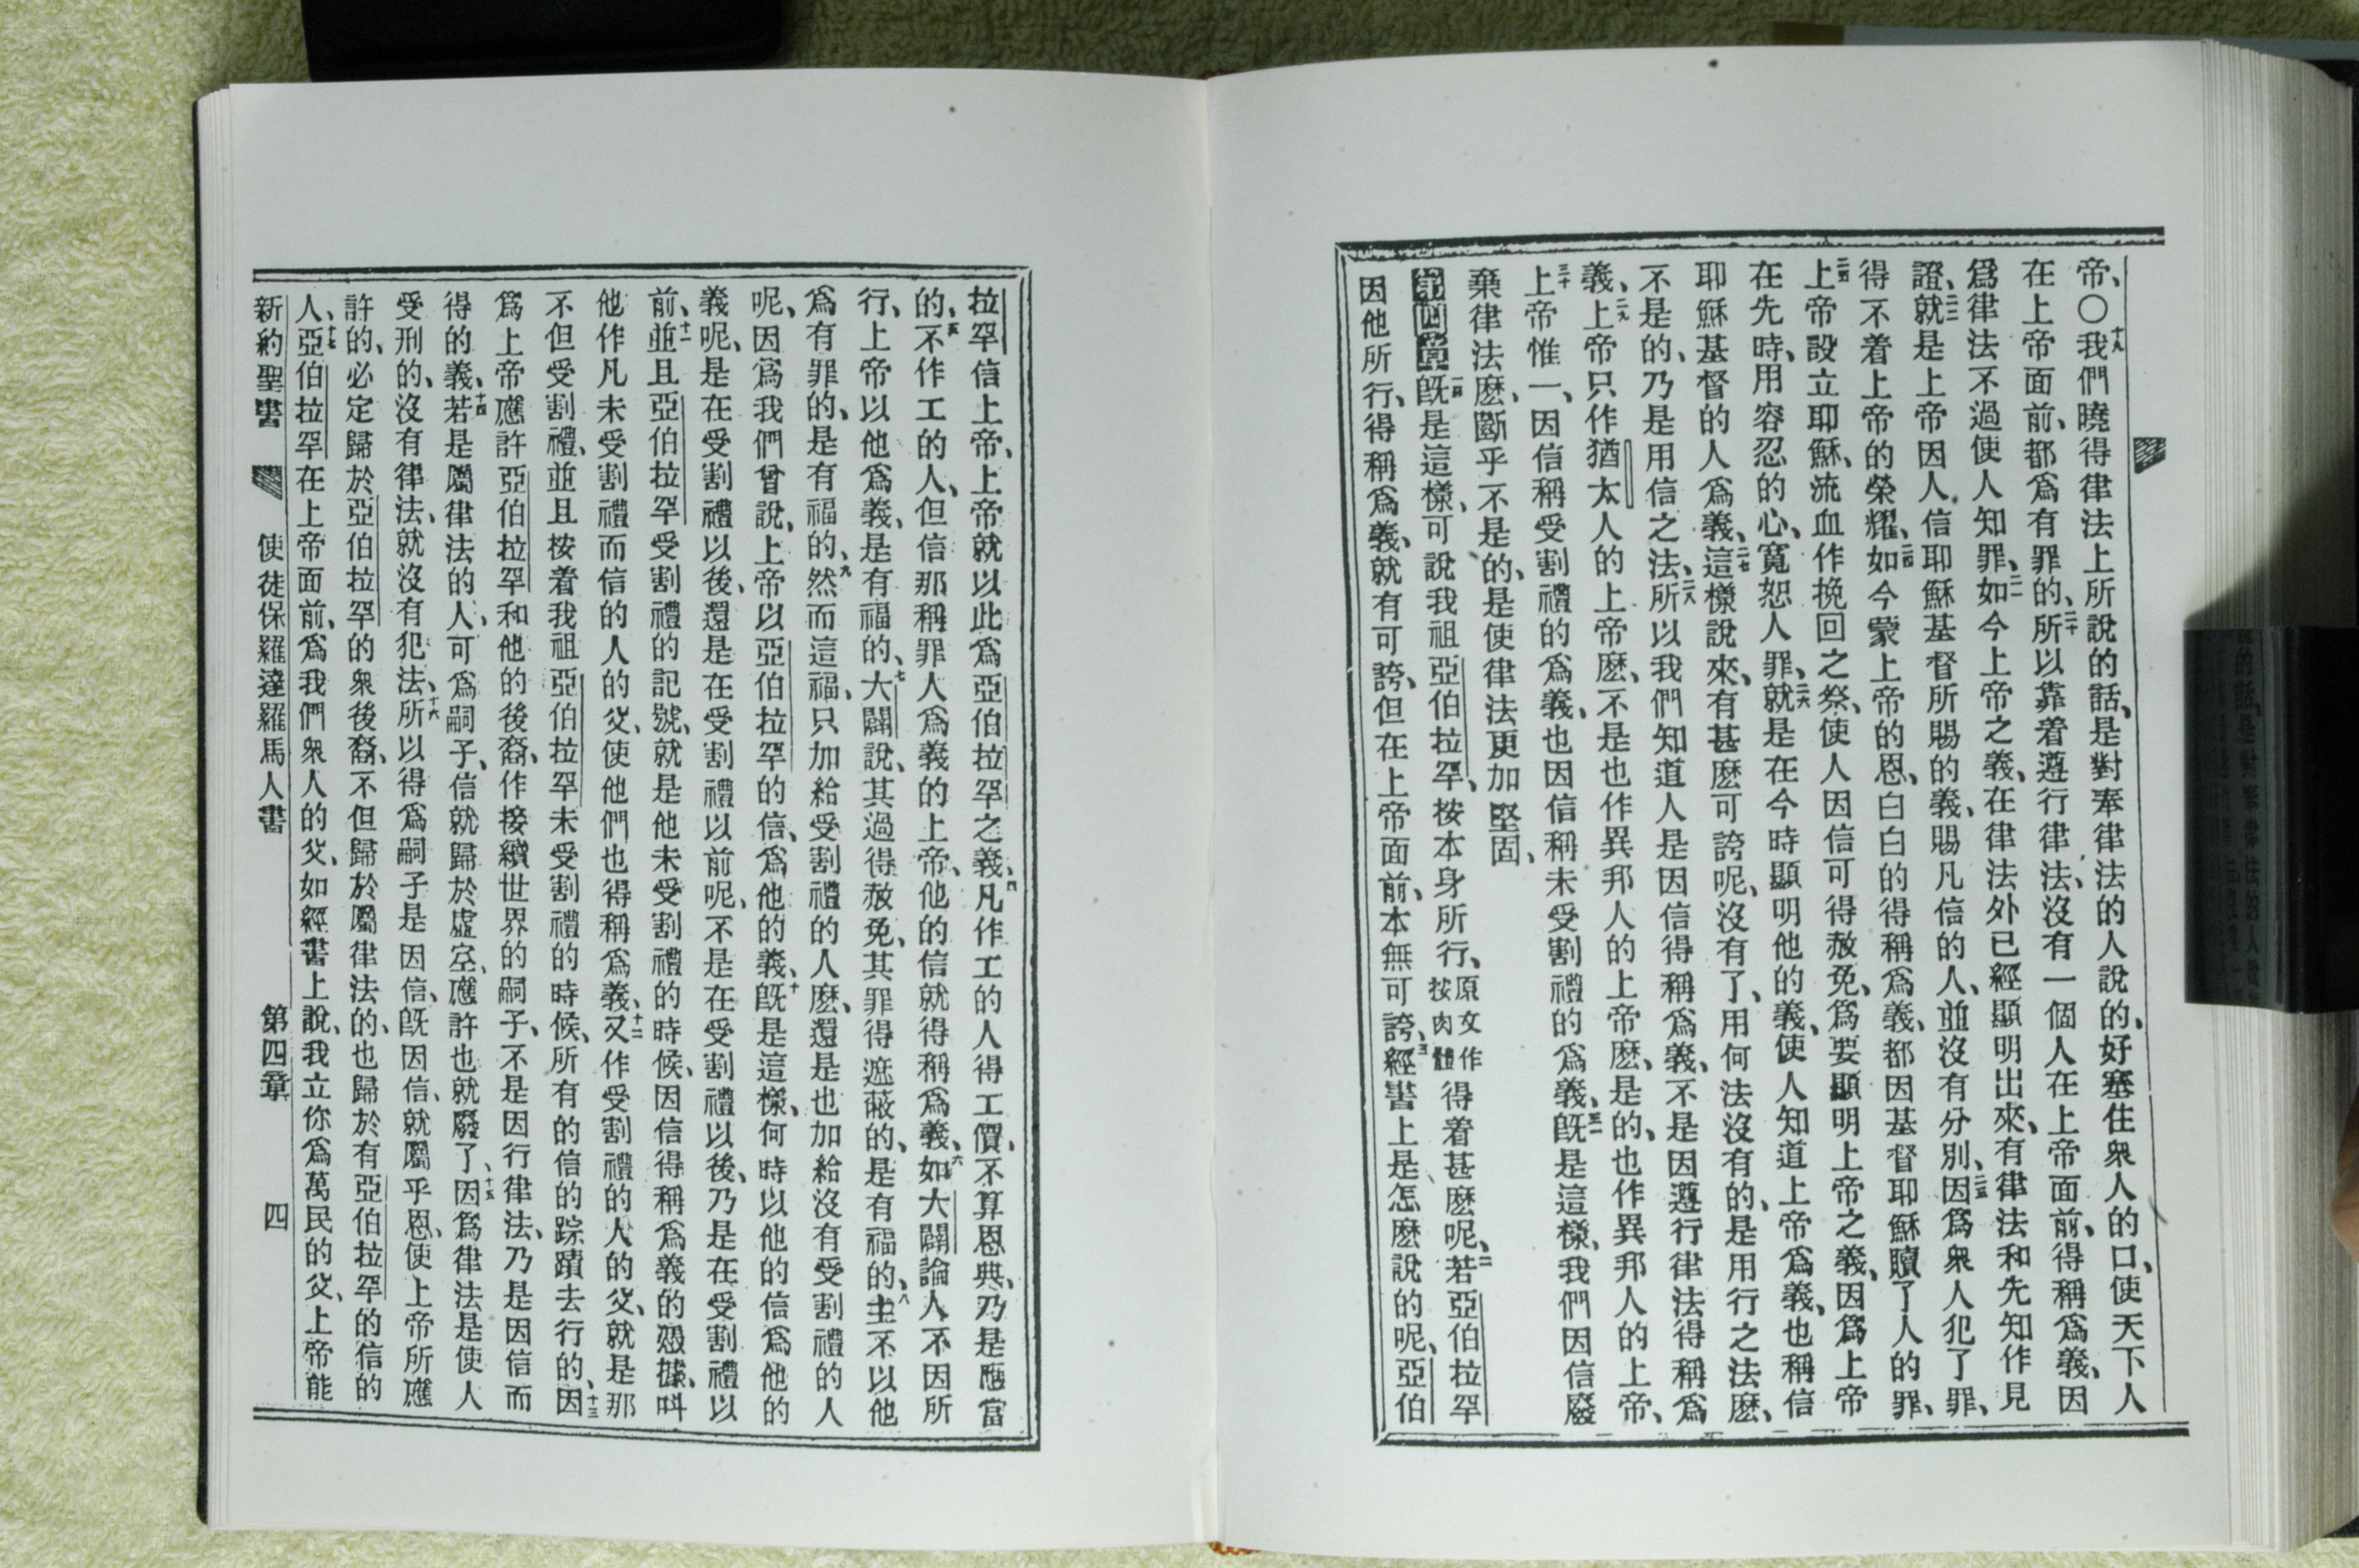 帝、○十八我們曉得律法上所說的話、是對奉律法的人說的、好塞住衆人的口、使天下人
在上帝面前、都爲有罪的、二十所以靠着遵行律法、沒有一個人在上帝面前、得稱爲義、因
爲律法不過使人知罪、二一如今上帝之義、在律法外已經顯明出來、有律法和先知作見
證、二二就是上帝因人信耶穌基督所賜的義、賜凡信的人、並沒有分別、二三因爲衆人犯了罪、
得不着上帝的榮耀、二四如今蒙上帝的恩、白白的得稱爲義、都因基督耶穌贖了人的罪、
二五上帝設立耶穌、流血作挽回之祭、使人因信可得赦免、爲要顯明上帝之義、因爲上帝
在先時、用容忍的心、寬恕人罪、二六就是在今時顯明他的義、使人知道上帝爲義、也稱信
耶穌基督的人爲義、二七這樣說來、有甚麽可誇呢、沒有了、用何法沒有的、是用行之法麽、
不是的、乃是用信之法、二八所以我們知道人是因信得稱爲義、不是因遵行律法、得稱爲
義、二九上帝只作猶太人的上帝麽、不是也作異邦人的上帝麽、是的、也作異邦人的上帝、
三十上帝惟一、因信稱受割禮的爲義、也因信稱未受割禮的爲義、三一旣是這樣、我們因信廢
棄律法麽、斷乎不是的、是使律法更加堅固、
第四章一旣是這樣、可說我祖亞伯拉罕、按本身所行、原文作按肉體得着甚麽呢、二若亞伯拉罕
因他所行、得稱爲義、就有可誇、但在上帝面前、本無可誇、三經書上是怎麽說的呢、亞伯
拉罕信上帝、上帝就以此爲亞伯拉罕之義、四凡作工的人得工價、不算恩典、乃是應當
的、五不作工的人、但信那稱罪人爲義的上帝、他的信就得稱爲義、六如大闢論人不因所
行、上帝以他爲義、是有福的、七大闢說、其過得赦免、其罪得遮蔽的、是有福的、八主不以他
爲有罪的、是有福的、九然而這福、只加給受割禮的人麽、還是也加給沒有受割禮的人
呢、因爲我們曾說、上帝以亞伯拉罕的信、爲他的義、十旣是這樣、何時以他的信爲他的
義呢、是在受割禮以後、還是在受割禮以前呢、不是在受割禮以後、乃是在受割禮以
前、十一並且亞伯拉罕受割禮的記號、就是他未受割禮的時候、因信得稱爲義的憑據、呌
他作凡未受割禮而信的人的父、使他們也得稱爲義、十二又作受割禮的人的父、就是那
不但受割禮、並且按着我祖亞伯拉罕未受割禮的時候、所有的信的踪蹟去行的、十三因
爲上帝應許亞伯拉罕和他的後裔、作接續世界的嗣子、不是因行律法、乃是因信而
得的義、十四若是屬律法的人、可爲嗣子、信就歸於虛空、應許也就廢了、十五因爲律法是使人
受刑的、沒有律法、就沒有犯法、十六所以得爲嗣子是因信、旣因信、就屬乎恩、使上帝所應
許的、必定歸於亞伯拉罕的衆後裔、不但歸於屬律法的、也歸於有亞伯拉罕的信的
人、十七亞伯拉罕在上帝面前、爲我們衆人的父、如經書上說、我立你爲萬民的父、上帝能
新約聖書 使徒保羅達羅馬人書 第四章 四